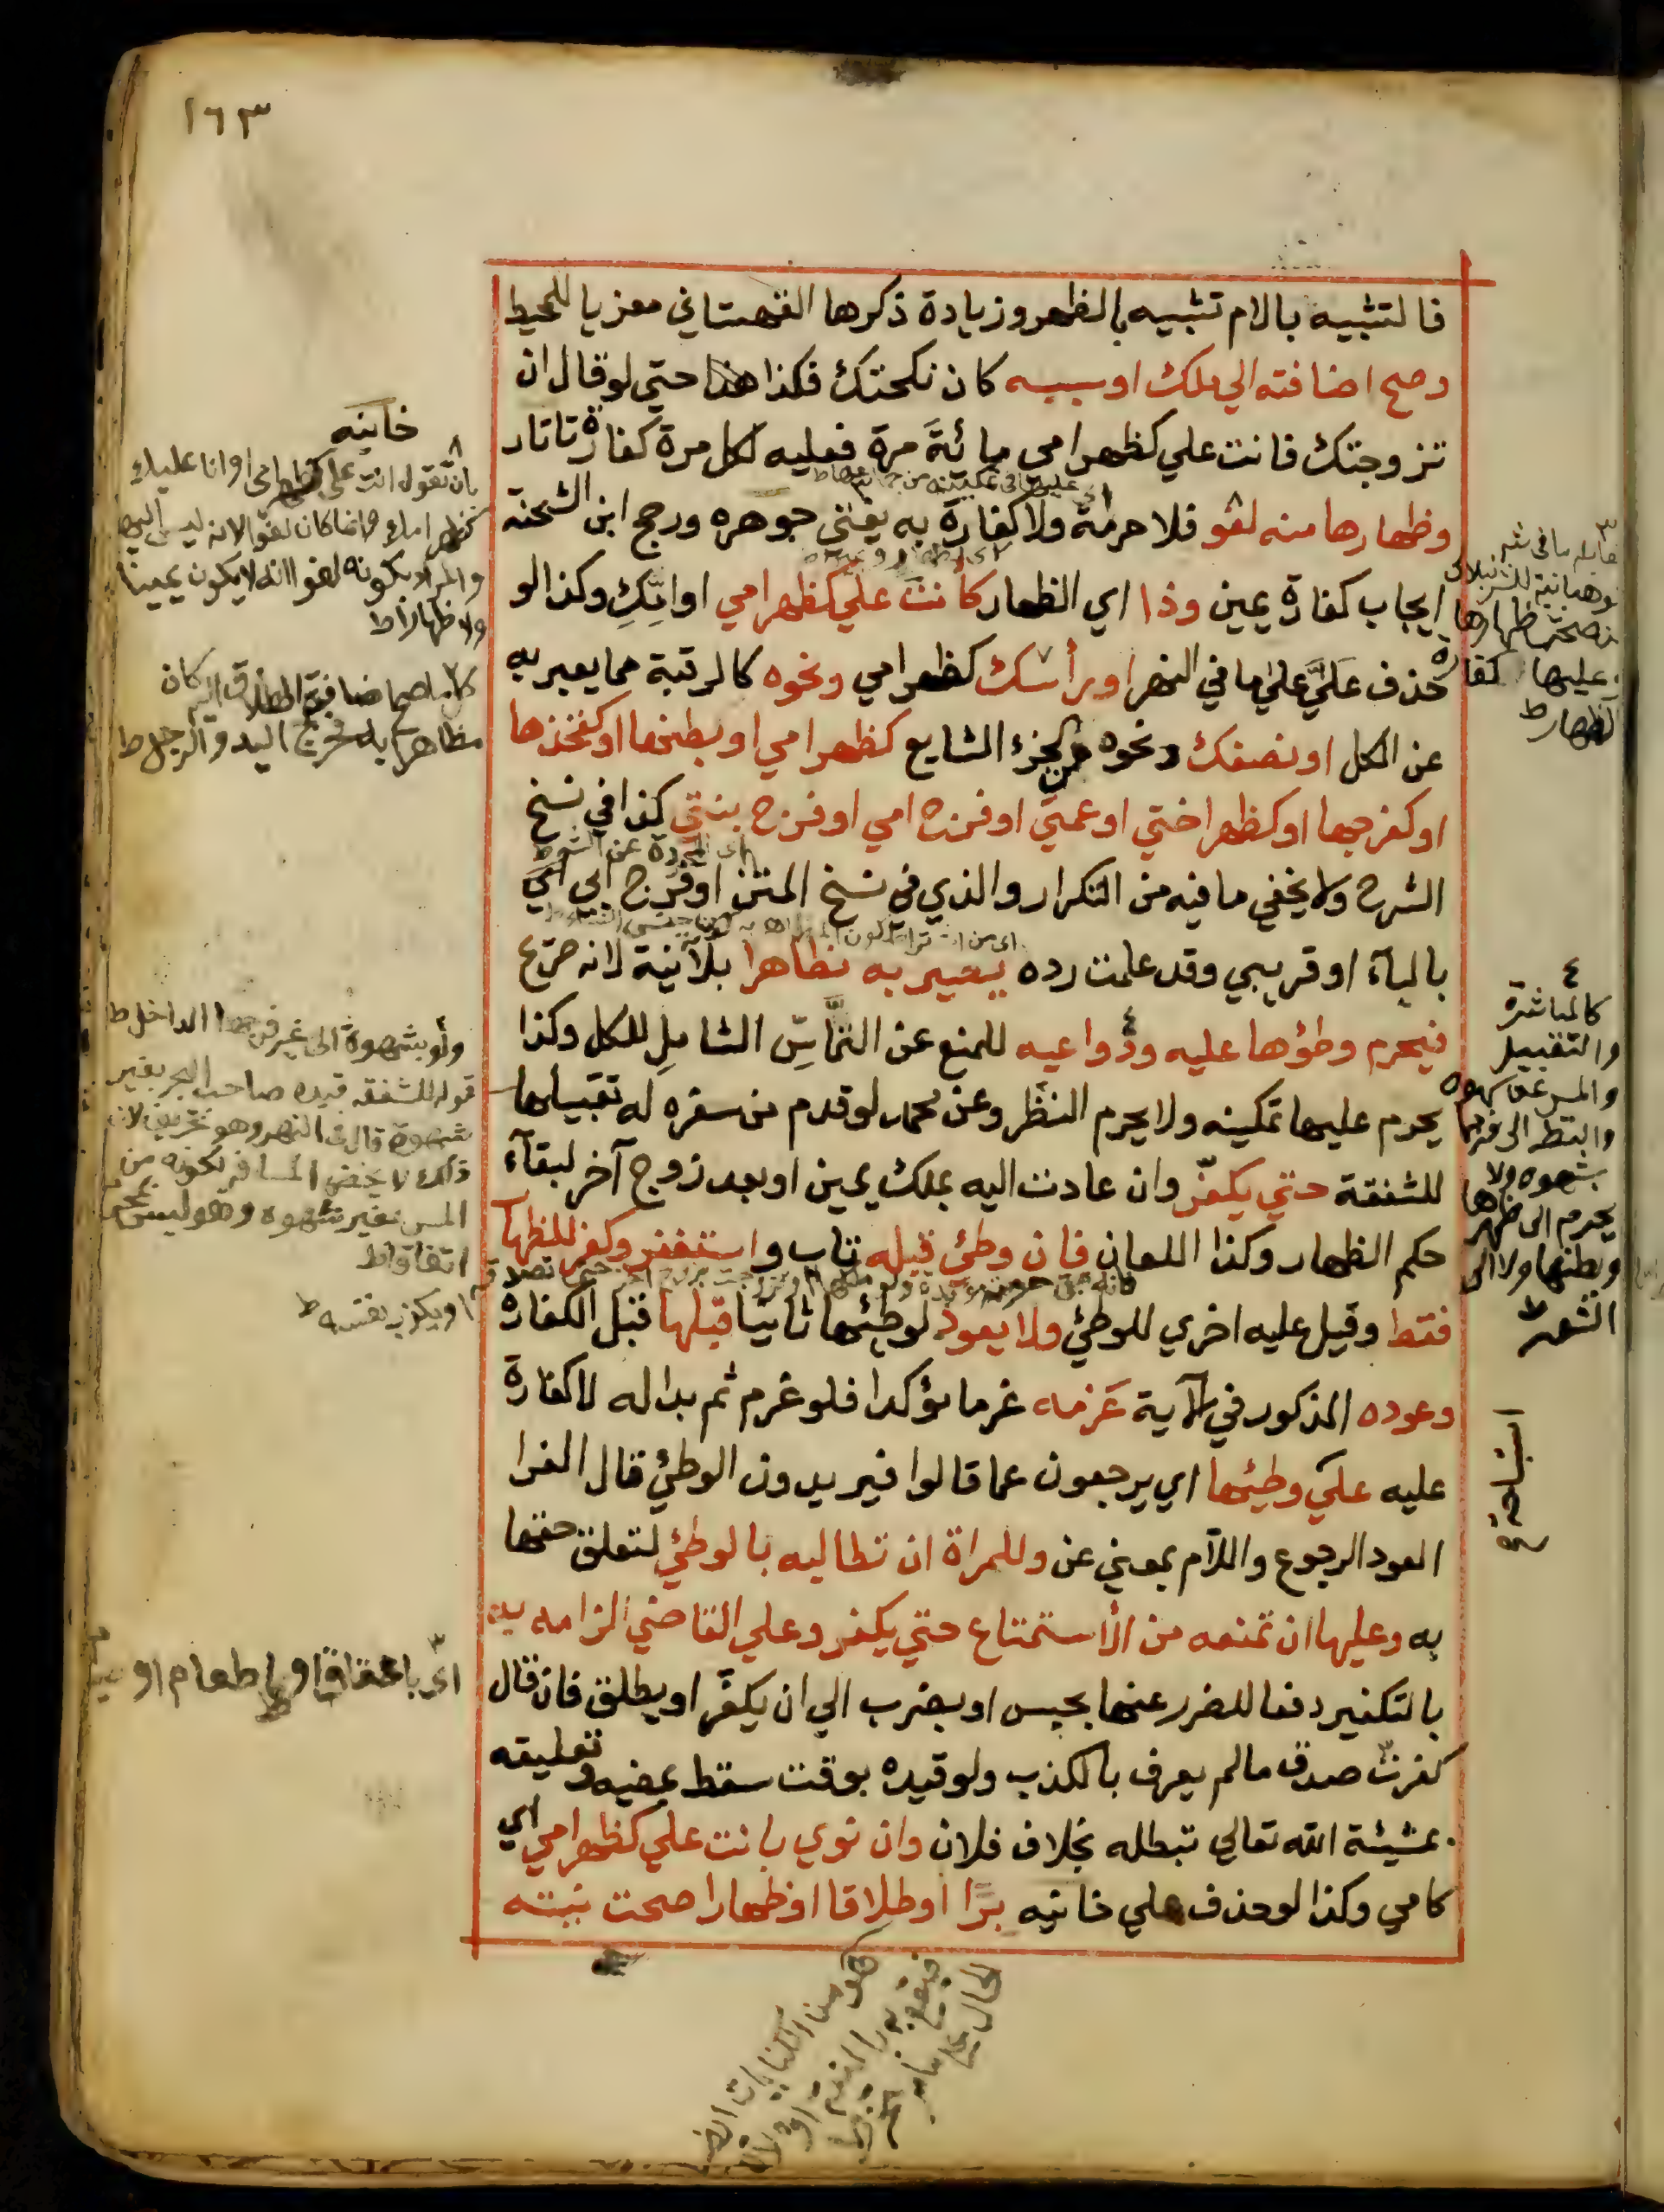 ١٦٣
فالتشبيه بالام تشبيه بالظهر وزيادة ذكرها القهستاني معزيا للمحيط
وصح اضافته الي ملك او سببه كان نكحتك فكذا هذا حتي لو قال ان
تزوجتك فانت علي كظهر امي مائة مرة فعليه لكل مرة كفارة تاتار
وظهارها منه لغو فلا حرمة ولا كفارة به يفتي جوهره ورجح ابن الشحنة
ايجاب كفارة يمين وذا اي الظهار كانت علي كظهر امي او امك وكذا لو
حذف علي علي ما في النهر او رأسك كظهر امي ونحوه كالرقبة مما يعبر به
عن الكل او نصفك ونحوه من الجزء الشايع كظهر امي او بطنها او كفخذها
او كفرجها او كظهر اختي او عمتي او فرج امي او فرج بنتي كذا في نسخ
الشرح ولا يخفي ما فيه من التكرار والذي في نسخ المتن او فرج ابي اي
بالياء او قريبي وقد علمت رده يصير به مظاهرا بلا نية لانه صريح
فيحرم وطؤها عليه ودواعيه للمنع عن التماس الشامل للكل وكذا
يحرم عليها تمكينه ولا يحرم النظر وعن محمد لو قدم من سفره له تقبيلها
للشفقة حتي يكفر وان عادت اليه بملك يمين او بعد زوج آخر لبقآء
حكم الظهار وكذا اللعان فان وطئ قبله تاب واستغفر وكفر للظهار
فقط وقيل عليه اخري للوطئ ولا يعود لوطئها ثانيا قبلها قبل الكفارة
وعوده المذكور في الآية عزمه عزما مؤكدا فلو عزم ثم بدا له لا كفارة
عليه علي وطئها اي يرجعون عما قالوا فيريدون الوطئ قال الفرا
العود الرجوع واللام بمعني عن وللمراة ان تطالبه بالوطئ لتعلق حقها
به وعليها ان تمنعه من الاستمتاع حتي يكفر وعلي القاضي الزامه به
بالتكفير دفعا للضرر عنها بحبس او بضرب الي ان يكفر او يطلق فان قال
كفرت صدق مالم يعرف بالكذب ولو قيده بوقت سقط بمضيه وتعليقه
بمشيئة الله تعالي تبطله بخلاف فلان وان نوي بانت علي كظهر امي اي
كامي وكذا لو حذف علي خانيه برا او طلاقا او ظهارا صحت نيته
خانيه
بان تقول انت علي كظهر امي او انا عليك
كظهر امك
والمراد بكونه لغوا انه لا يكون يمينا
ولا ظهارا ط
كل ما صح اضافة الطلاق اليه كان
مظاهرا به فخرج اليد والرجل ط
ولو بشهوة الى غير فرجها الداخل ط
قوله للشفقة قيده صاحب البحر بغير
شهوة قال في النهر وهو تحريف لان
ذلك لا يخص المسافر لكونه من
المس بغير شهوة وهو ليس بمحرم
اتفاقا ط
او يكون بفسه ط
اي باعتاق او اطعام او
ظهارها
عليها كفارة
الظهار ط
٤
كالمباشرة
والتقبيل
والمس عن شهوة
والنظر الى فرجها
بشهوه ولا
يحرم الى ظهرها
وبطنها ولا الى
الشعر ط